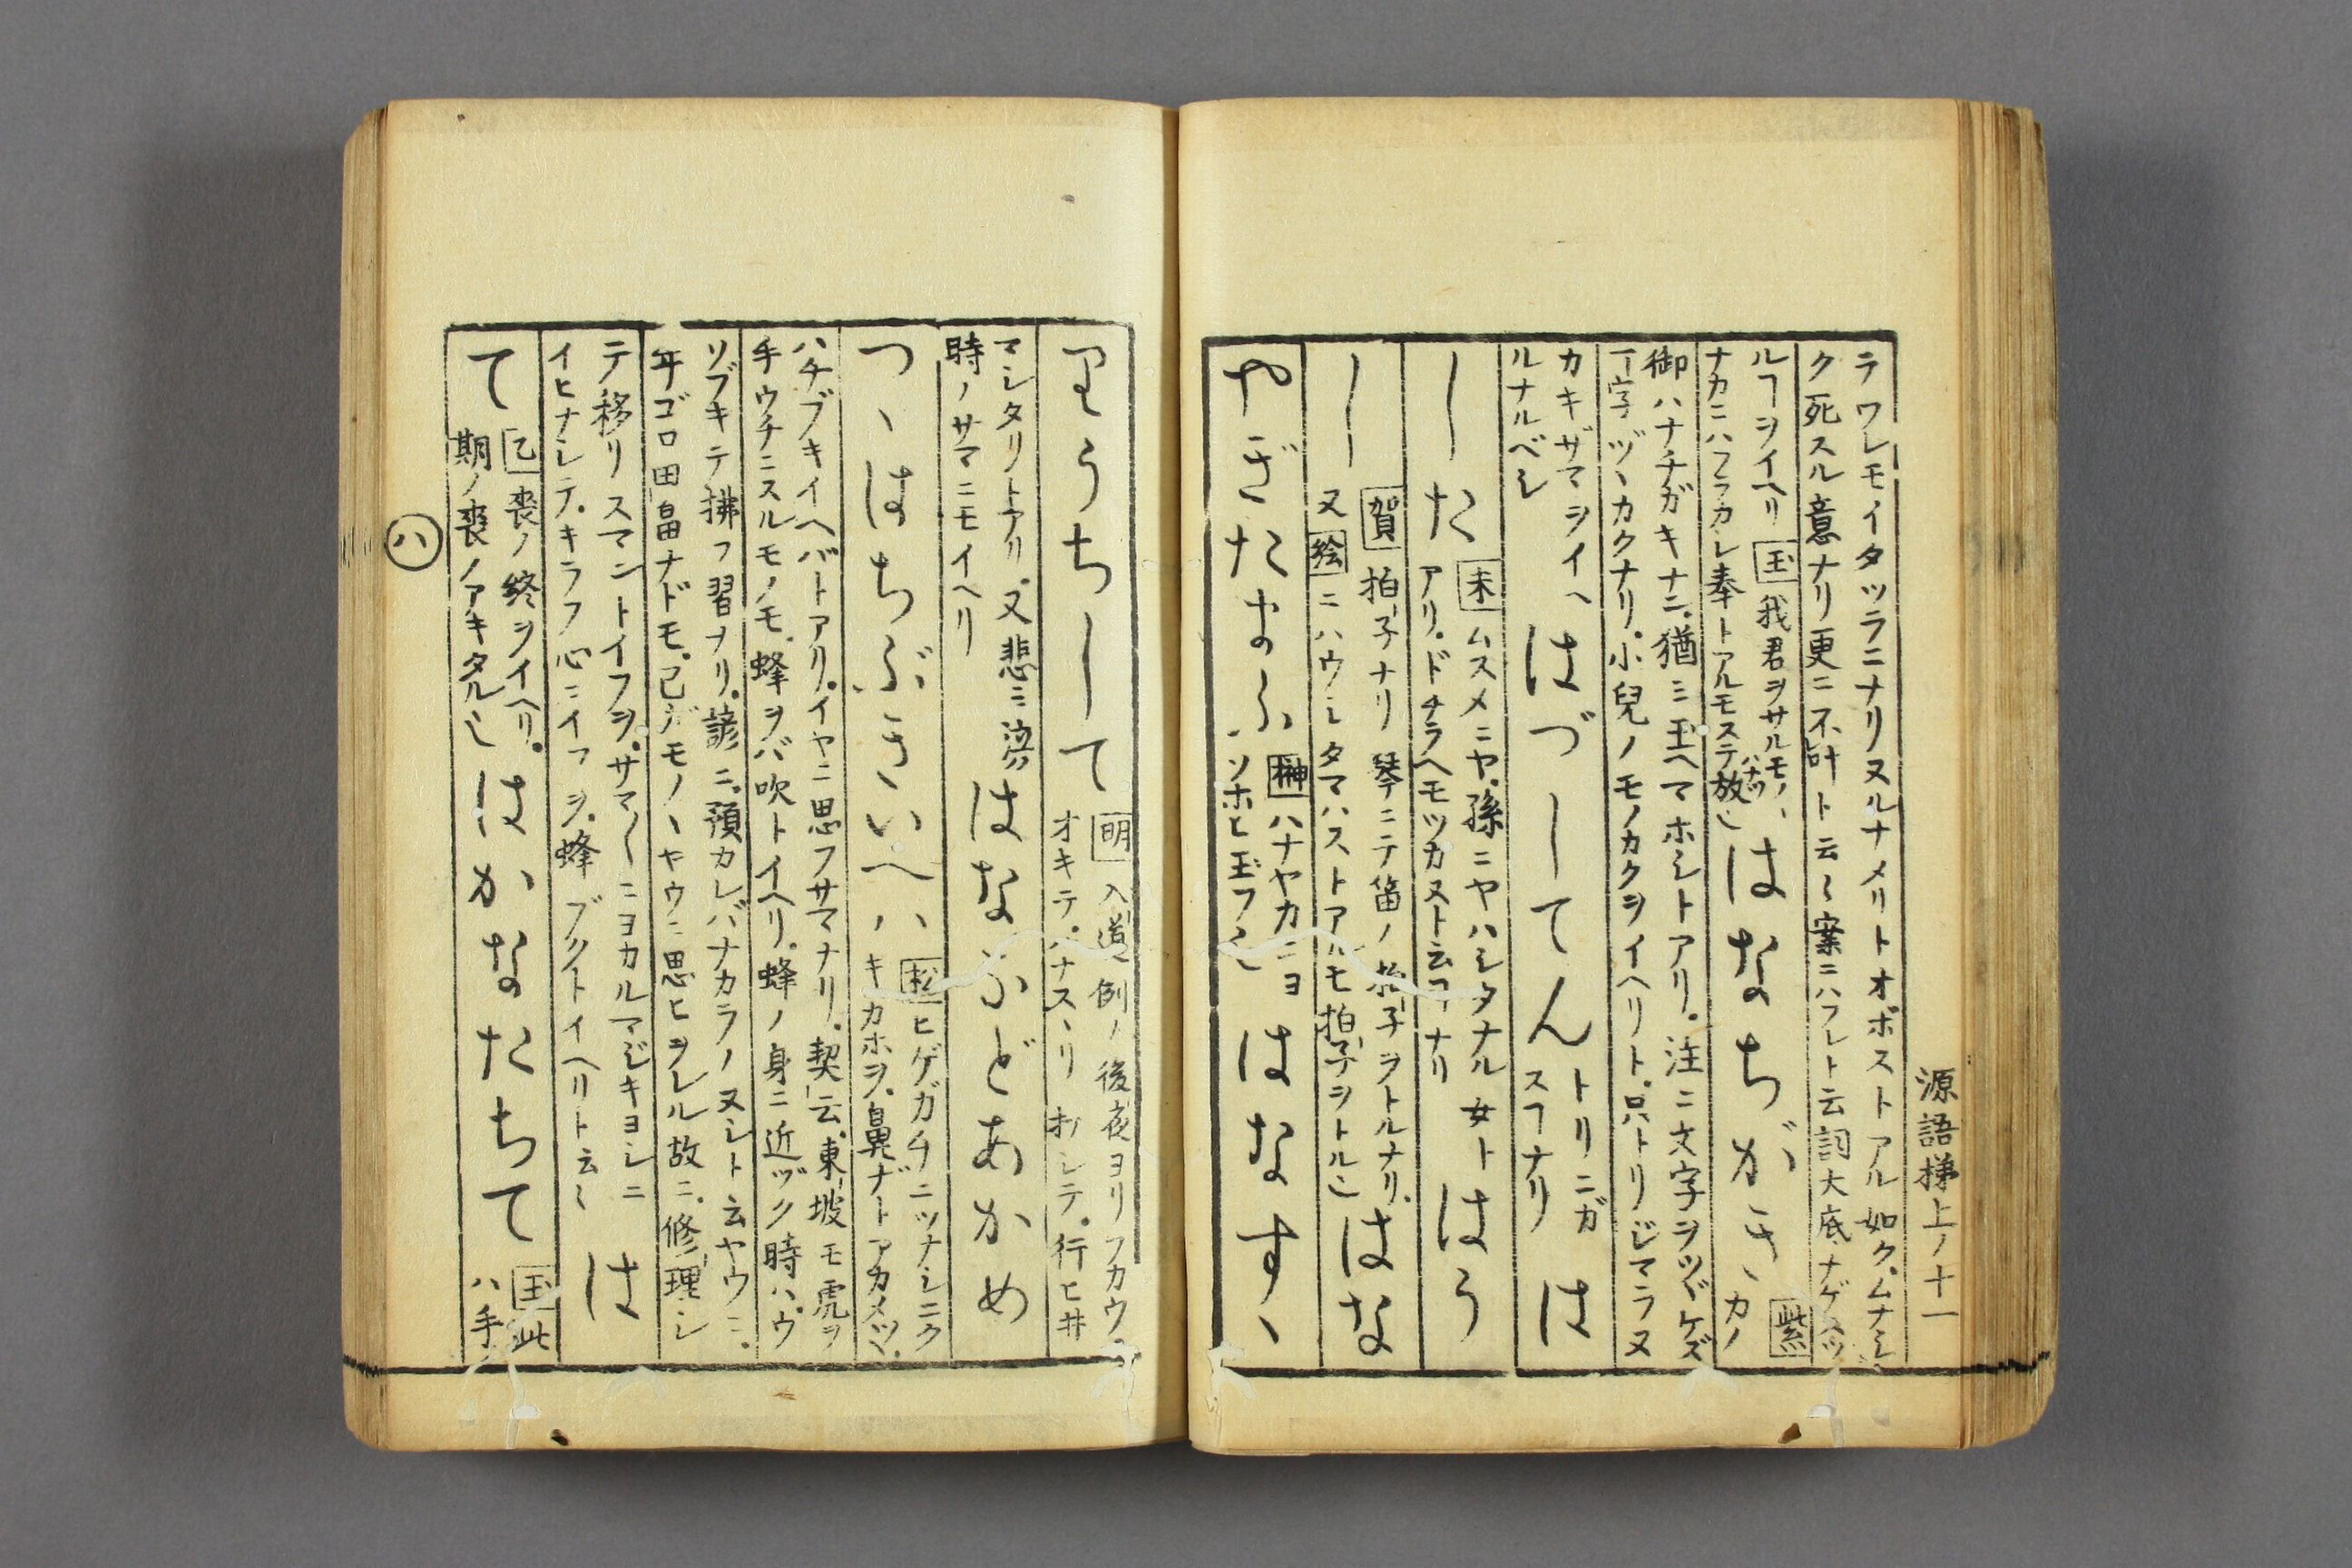 源語梯上ノ十一
テワレモイタツラニナリヌルナメリトオボストアル如ク。ムナシ
ク死スル意ナリ更ニ不計ト云々案ニハフレト云詞大底ナゲ
ルヿヲイヘリ 玉 我君ヲサルモノヽ
ナカニハフラカシ奉トアルモステ放
はなちがき 紫 カノ
御ハナチガキナニ。猶ミ玉ヘマホシトアリ。注ニ文字ヲツヾケズ
一字ヅヽカクナリ。小兒ノモノカクヲイヘリト。只トリジマラヌ
カキザマヲイヘ
ルナルベシ
はづしてん トリニガ
スヿナリ
は
したな 末 ムスメニヤ。孫ニヤハシタナル女ト
アリ。ドチラヘモツカヌト云ヿナリ
はう
し 賀 拍子ナリ 琴ニテ笛ノ拍子ヲトルナリ。
又 絵 ニハウシタマハストアルモ拍子ヲトル
はな
やぎたまふ 榊 ハナヤカニヨ
ソホヒ玉フ
はなすゝ
りうちして 明 入道例ノ後夜ヨリフカウ。
オキテ。ハナスヽリ オハシテ。行ヒ井
マシタリトアリ。又悲ミ泣
時ノサマニモイヘリ
はなぶどあかめ
つゝはちぶきいへハ 松 ヒゲガチニツナシニク
キカホヲ。鼻ナドアカメツヽ。
ハチブキイヘバトアリ。イヤニ思フサマナリ。契云。東坡モ虎ヲ
手ウチニスルモノモ。蜂ヲバ吹トイヘリ。蜂ノ身ニ近ヅク時ハ。ウ
ソブキテ拂フ習ナリ。諺ニ。預カレバナカラノヌシト云ヤウニ。
年ゴロ田畠ナドモ。己ガモノヽヤウニ思ヒヲレル故ニ。修理シ
テ移リスマントイフヲ。サマ〳〵ニヨカルマジキヨシニ
イヒナシテ。キラフ心ニイフヲ。蜂ブクトイヘリト云々
は
て 乙 喪ノ終ヲイヘリ。
期ノ喪ノアキタル
はかなたちて 玉
ハ手
ハ